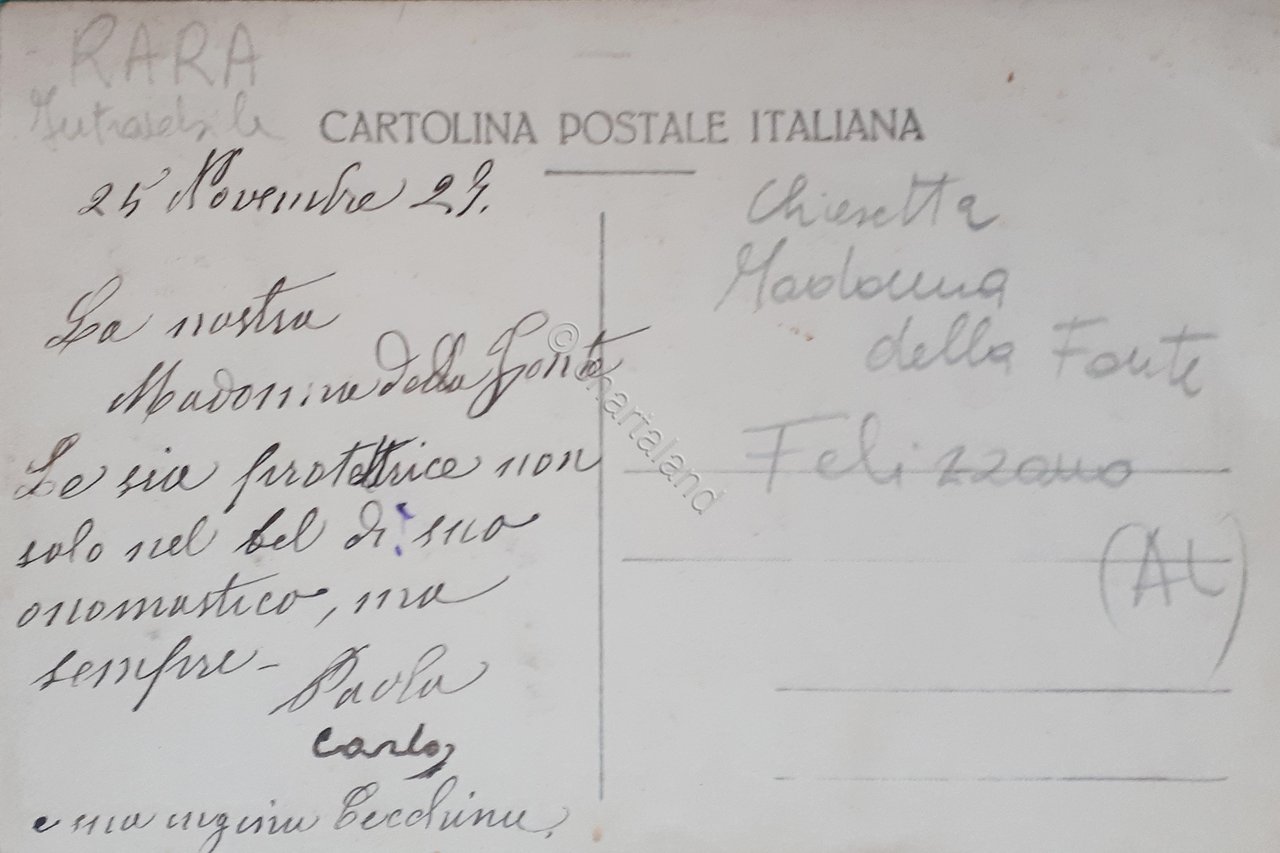 RARA
CARTOLINA POSTALE ITALIANA
25 Novembre 23.
La nostra
Madonnina della Fonte
Le sia protettrice non
solo nel bel dì suo
onomastico, ma
sempre -
Paola
Carlo,
e sua cugina Cecchina.
Chiesetta
Madonna
della Fonte
Felizzano
(AL)
© Chartaland